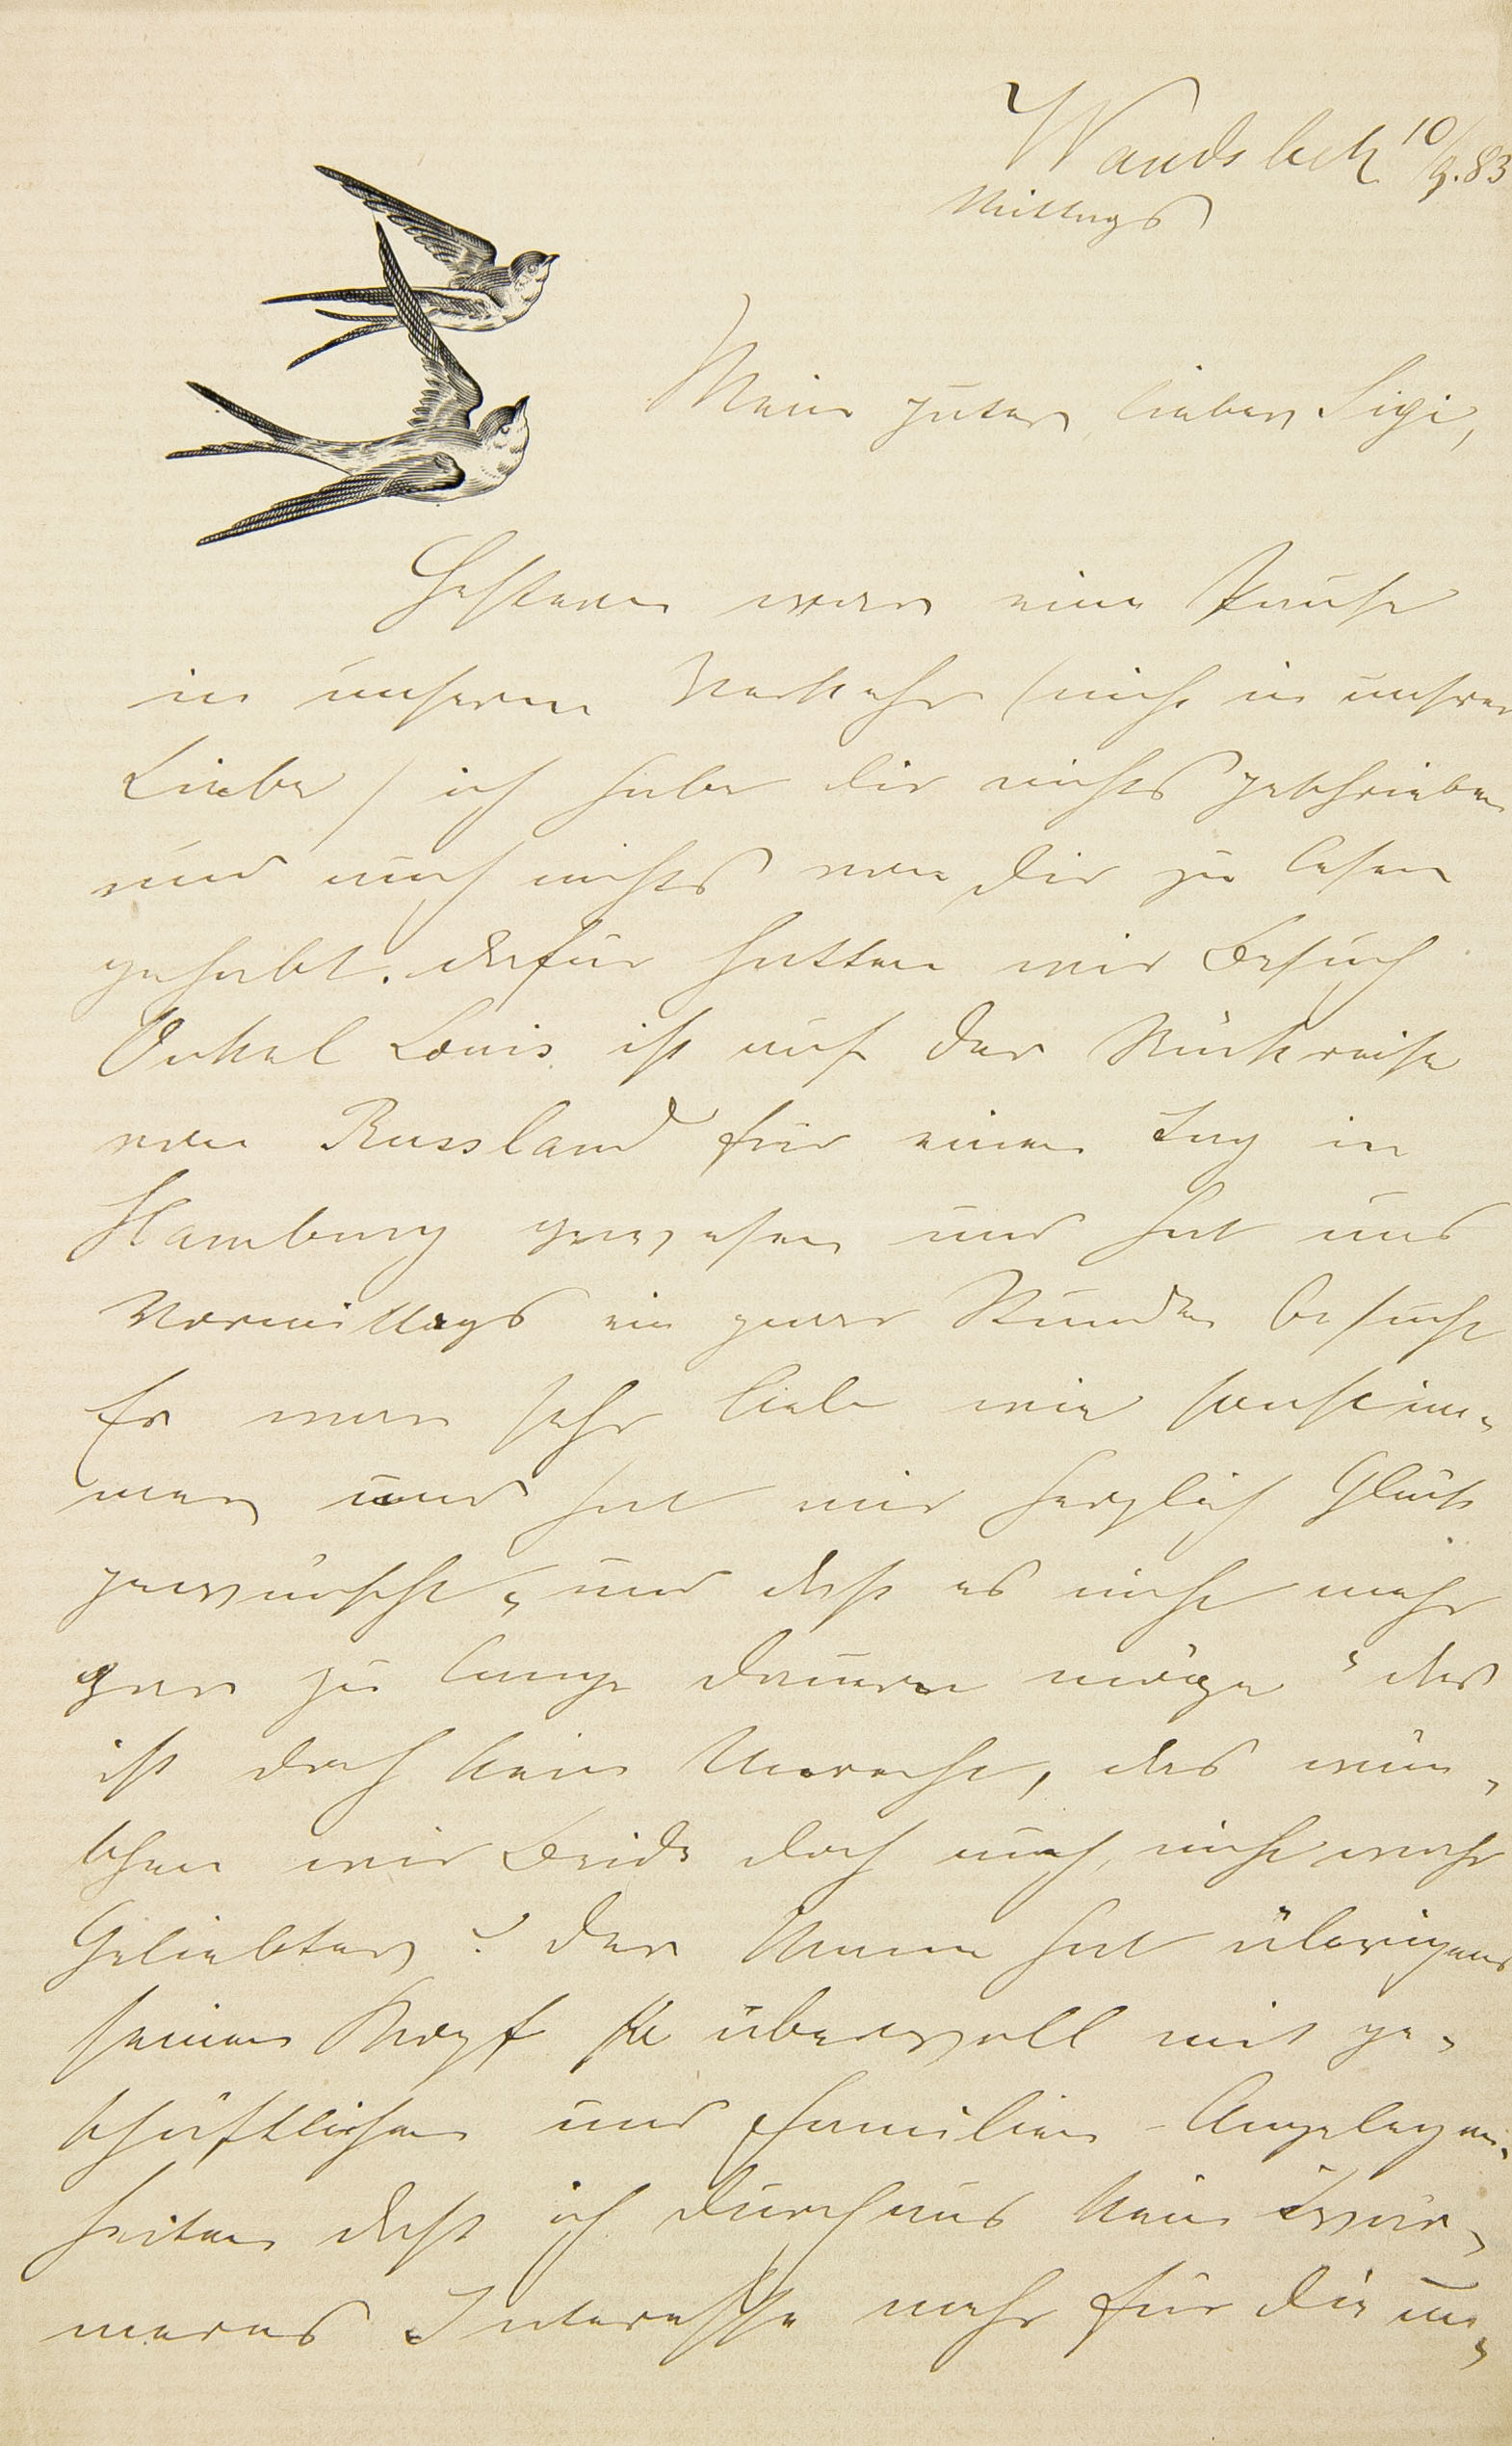 Wandsbek 10/9.83
Mittags
Mein guter, lieber Sigi,
Gestern war eine Pause
in unserm Verkehr (nicht in unsrer
Liebe) ich habe Dir nichts geschrieben
und auch nichts von Dir zu lesen
gehabt. dafür hatten wir Besuch
Onkel Louis ist auf der Rückreise
von Russland für einen Tag in
Hamburg gewesen und hat uns
Vormittags ein paar Stunden besucht
Er war sehr lieb wie sonst im-
mer, und hat mir herzlich Glück
gewünscht „und daß es nicht mehr
gar zu lange dauern möge“ das
ist doch kein Unrecht, das wün-
schen wir Beide doch auch, nicht wahr
Geliebter? Der Mann hat übrigens
seinen Kopf so übervoll mit ge-
schäftlichen und Familien-Angelegen-
heiten daß ich durchaus kein wär-
meres Interesse mehr für die un-